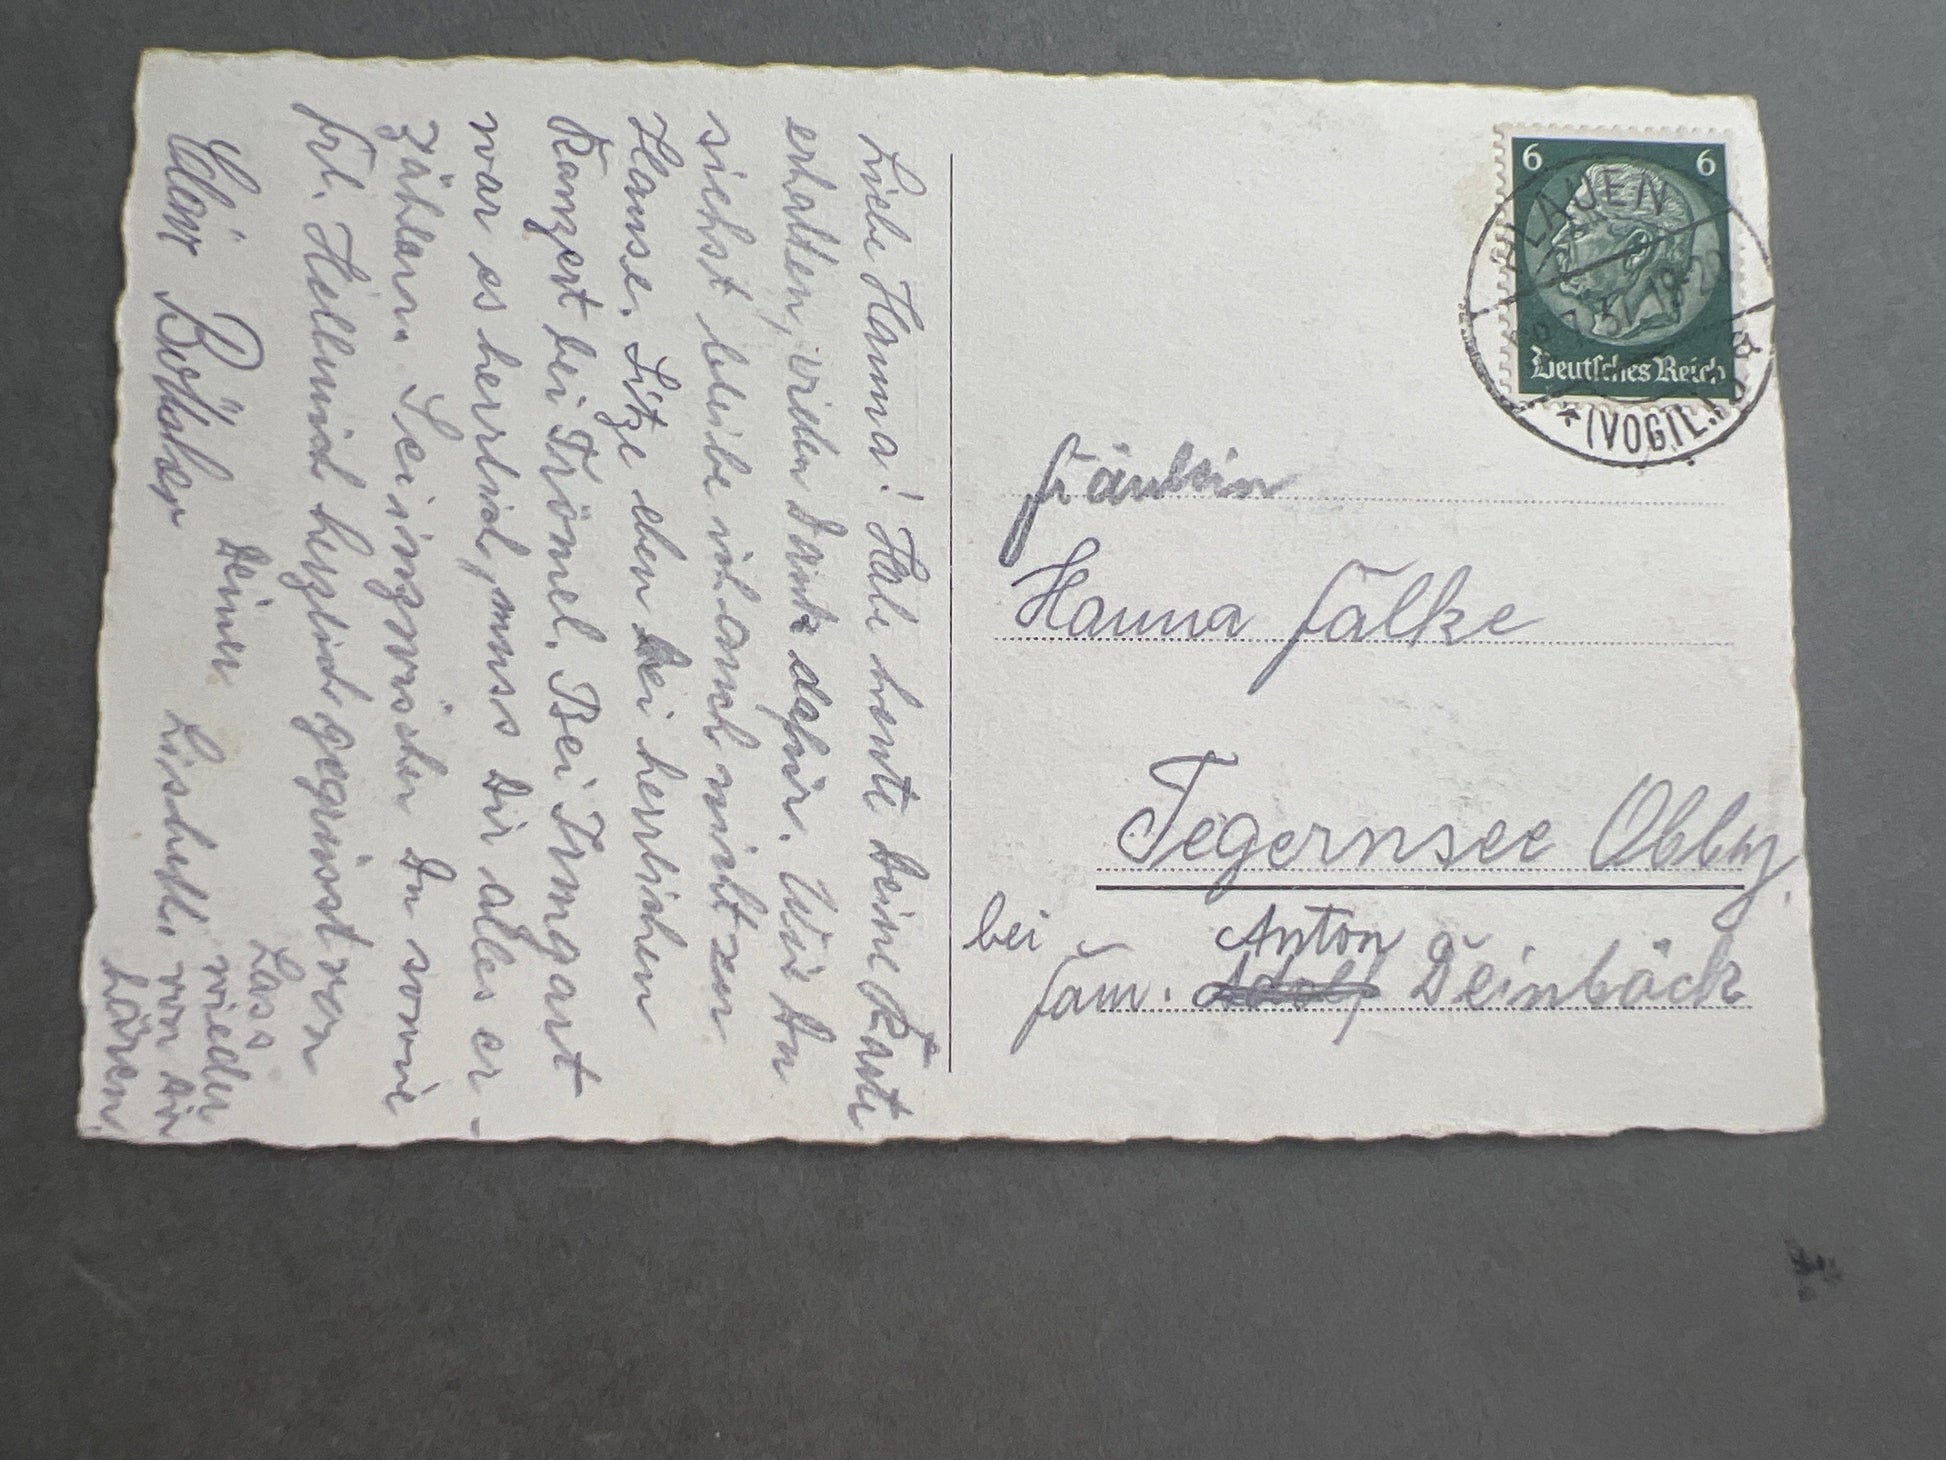 Liebe Hanna! Habe heute Deine Karte
erhalten, vielen Dank dafür. Wie Du
siehst bleibe ich auch nicht zu
Hause. Sitze eben bei herrlichen
Konzert bei Trömel. Bei Irmgart
war es herrlich, muss Dir alles er-
zählen. Sei inzwischen Du sowie
Frl. Hellmich herzlich gegrüsst von
Deiner Lisbeth.
Lass
wieder
von Dir
hören
6 6
Deutsches Reich
PLAUEN
(VOGTL.)
Fräulein
Hanna Falke
Tegernsee Obby.
bei Anton
Fam. Adolf Deinböck